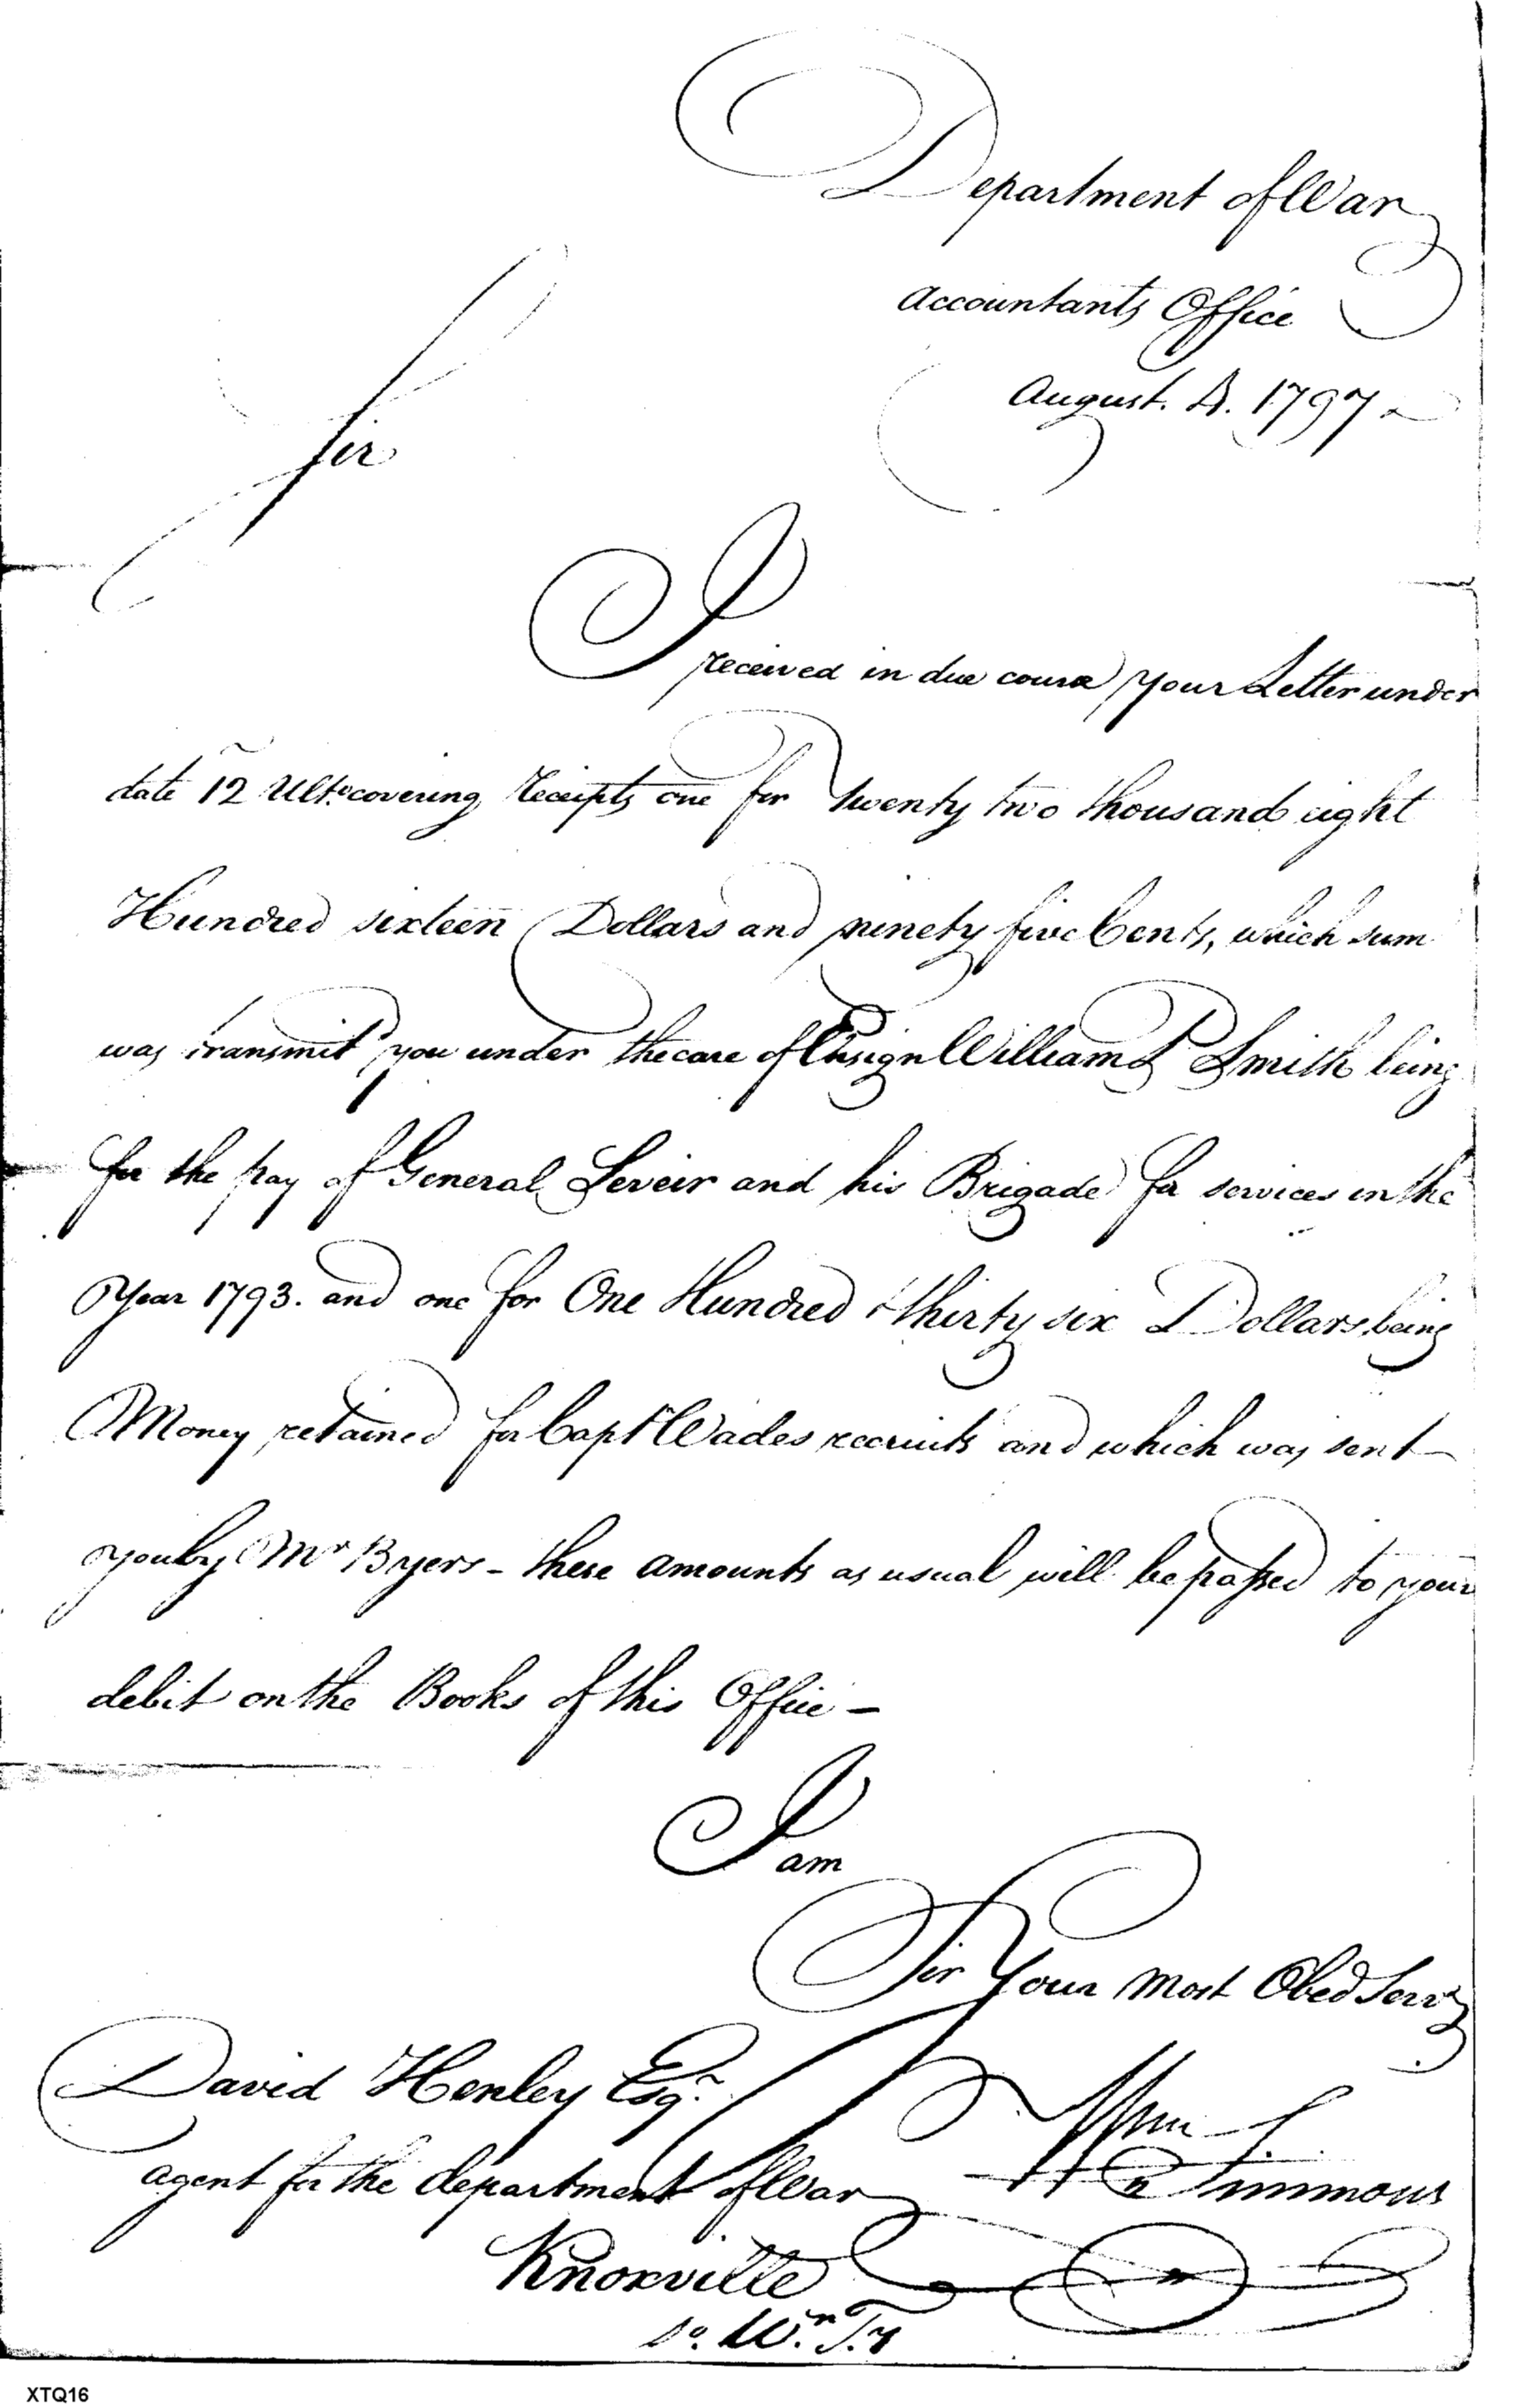 Department of War
Accountants Office
August. 4. 1797
Sir
I received in due course your Letter under
date 12 Ulto. covering receipts one for twenty two thousand eight
Hundred sixteen Dollars and ninety five Cents, which sum
was transmitd you under the care of Ensign William P Smith being
for the pay of General Seveir and his Brigade for services in the
Year 1793. and one for One Hundred & thirty six Dollars, being
Money retained for Capt Wades recruits and which was sent
you by Mr Byers - these amounts as usual will be passed to your
debit on the Books of this Office -
I am
Sir Your most Obed Servt
David Henley Esqr.
Wm Simmons
agent for the department of War
Knoxville
So. Wn. Ty
XTQ16